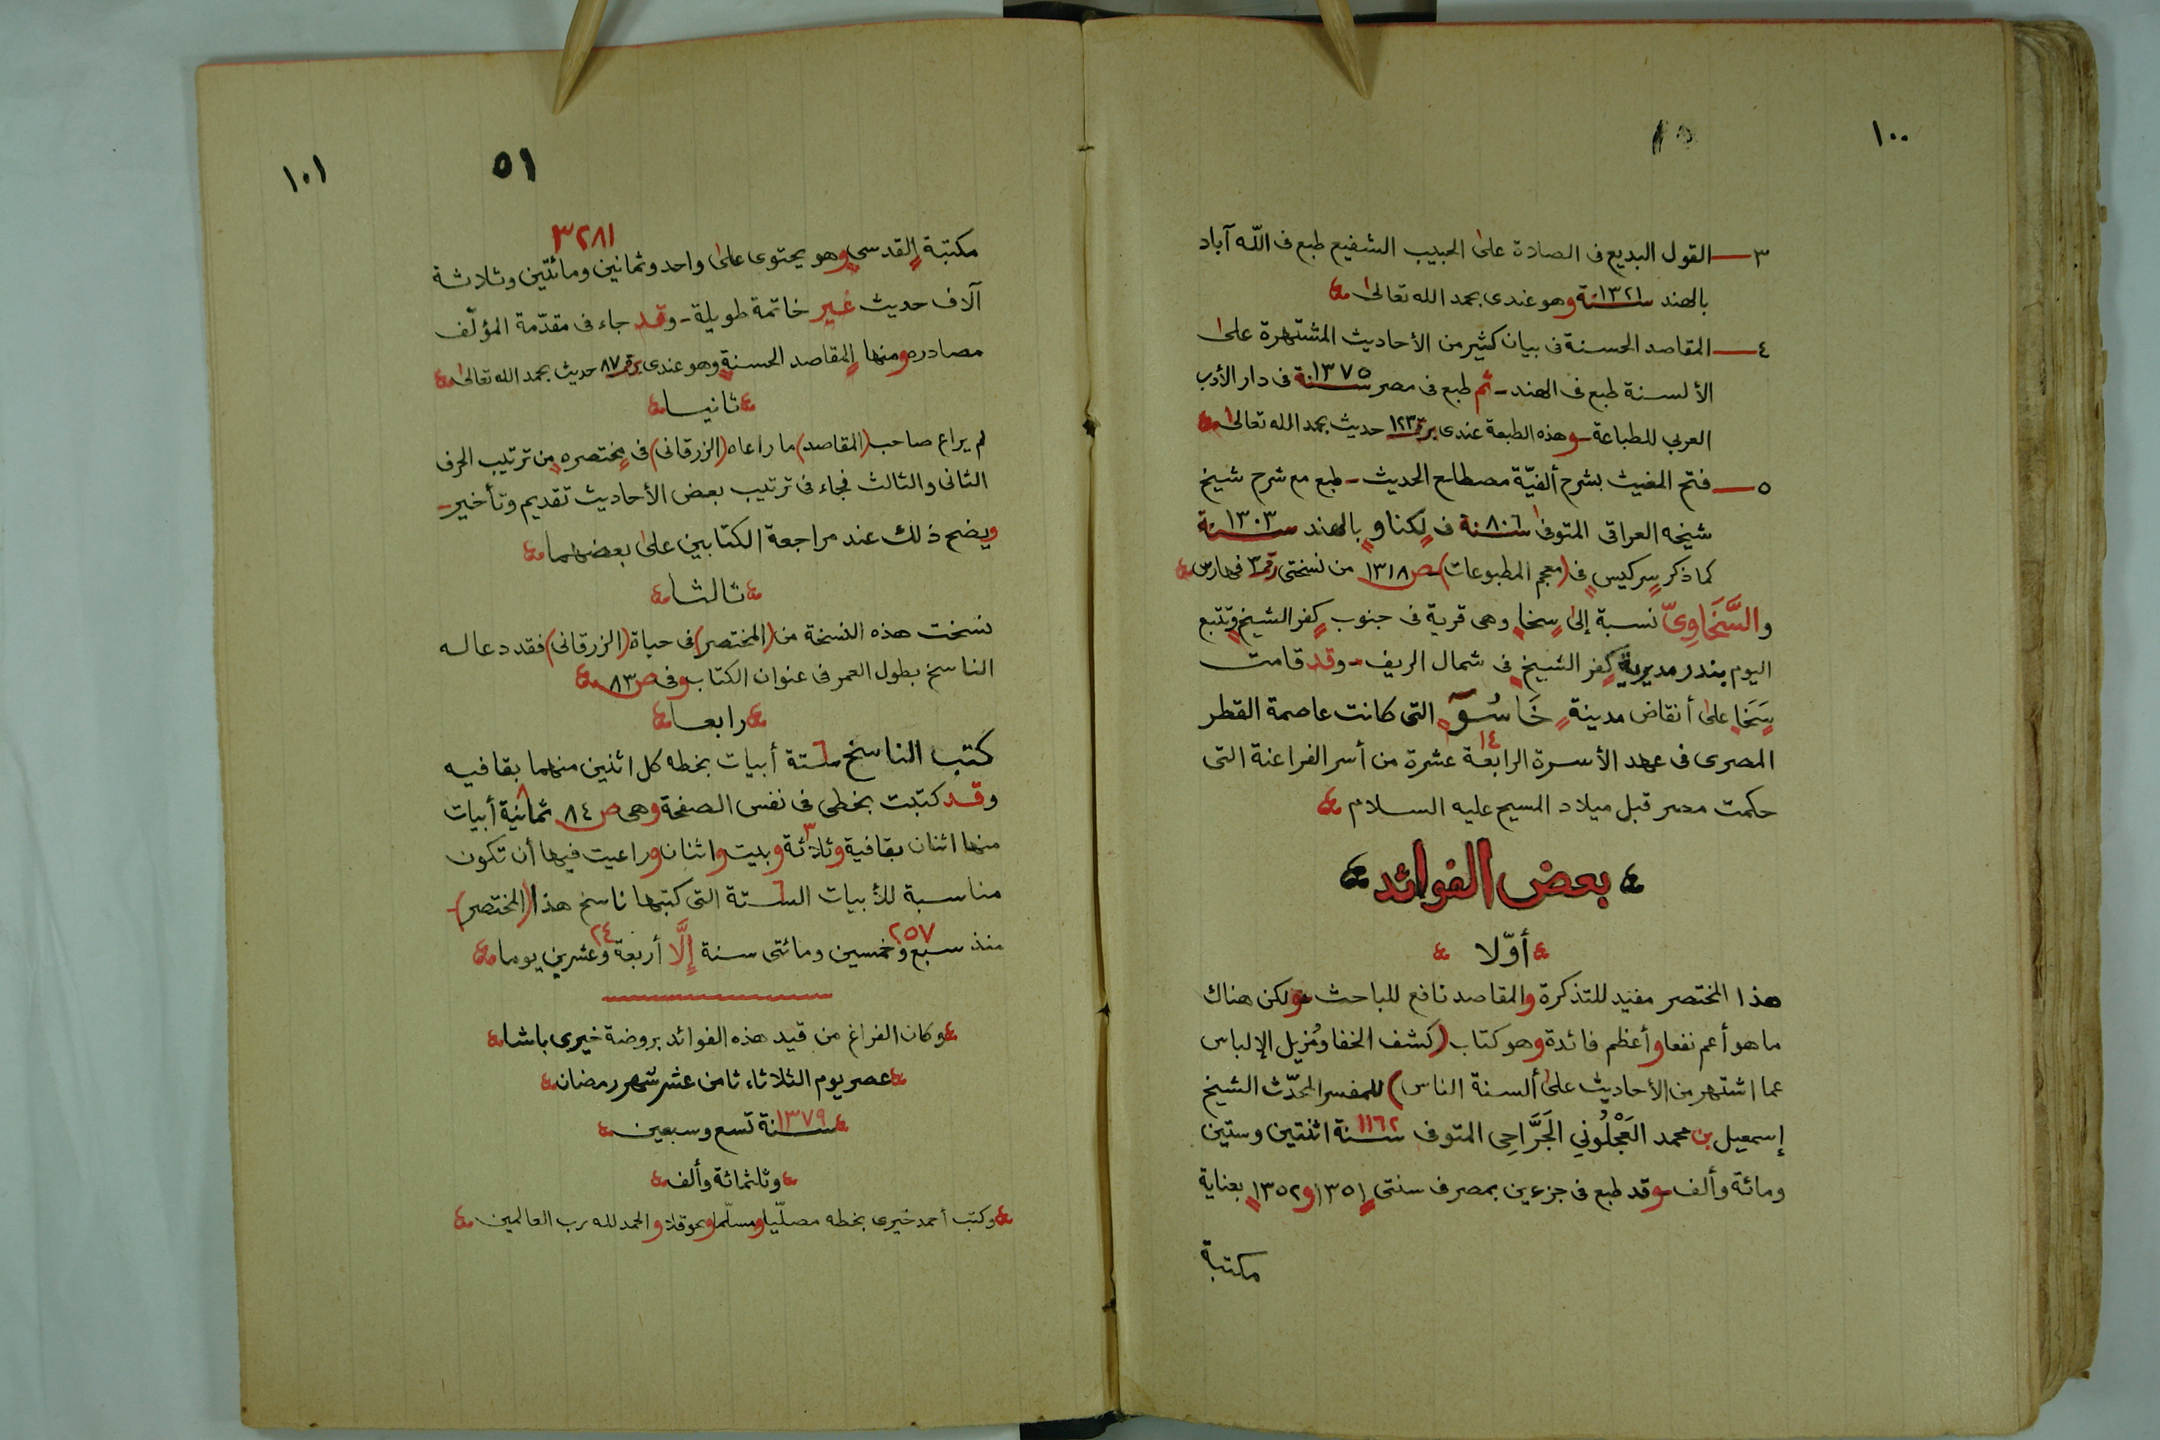 ١٠٠
٣ــ القول البديع فى الصلاة على الحبيب الشفيع طبع فى اللّٰه آباد
بالهند سنة ١٣٢١ وهو عندى بحمد الله تعالى
٤ــ المقاصد الحسنة فى بيان كثير من الأحاديث المشتهرة على
الألسنة طبع فى الهند ـ ثم طبع فى مصر سنة ١٣٧٥ فى دار الأدب
العربى للطباعة ـ وهذه الطبعة عندى برقم ١٢٣ حديث بحمد الله تعالى
٥ــ فتح المغيث بشرح ألفيّة مصطلح الحديث ـ طبع مع شرح شيخ
شيخه العراقى المتوفى سنة ٨٠٦ فى لكناو بالهند سنة ١٣٠٣
كما ذكر سركيس فى (معجم المطبوعات) ص ١٣١٨ من نسختى رقم ٣ فهارس
والسَّخَاوِىّ نسبة إلى سخا وهى قرية فى جنوب كفر الشيخ وتتبع
اليوم بندر مديرية كفر الشيخ فى شمال الريف ـ وقد قامت
سَخَا على أنقاض مدينة خَاسُوَ التى كانت عاصمة القطر
المصرى فى عهد الأسرة الرابعة ١٤ عشرة من أسر الفراعنة التى
حكمت مصر قبل ميلاد المسيح عليه السلام
بعض الفوائد
أوّلا
هذا المختصر مفيد للتذكرة والمقاصد نافع للباحث ـ ولكن هناك
ما هو أعم نفعا وأعظم فائدة وهو كتاب (كشف الخفا ومُزيل الإلباس
عما اشتهر من الأحاديث على ألسنة الناس) للمفسر المحدّث الشيخ
إسمعيل بن محمد العَجْلُونى الجَرَّاحى المتوفى سنة ١١٦٢ اثنتين وستين
ومائة وألف ـ وقد طبع فى جزءين بمصر فى سنتى ١٣٥١ و١٣٥٢ بعناية
مكتبة
١٠١
٥١
٣٢٨١
مكتبة القدسى وهو يحتوى على واحد وثمانين ومائتين وثلاثة
آلاف حديث غير خاتمة طويلة ـ وقد جاء فى مقدّمة المؤلّف
مصادره ومنها المقاصد الحسنة وهو عندى برقم ٨٧ حديث بحمد الله تعالى
ثانيا
لم يراع صاحب (المقاصد) ما راعاه (الزرقانى) فى مختصره من ترتيب الحرف
الثانى والثالث فجاء فى ترتيب بعض الأحاديث تقديم وتأخير ـ
ويضح ذلك عند مراجعة الكتابين على بعضهما
ثالثا
نسخت هذه النسخة من (المختصر) فى حياة (الزرقانى) فقد دعا له
الناسخ بطول العمر فى عنوان الكتاب وفى ص ٨٣
رابعا
كتب الناسخ ستة ٦ أبيات بخطه كل اثنين منهما بقافيه
وقد كتبت بخطى فى نفس الصفحة وهى ص ٨٤ ثمانية ٨ أبيات
منها اثنان بقافية وثلاثة ٣ وبيت واثنان وراعيت فيها أن تكون
مناسبة للأبيات الستة ٦ التى كتبها ناسخ هذا (المختصر) ـ
منذ سبع وخمسين ومائتى ٢٥٧ سنة إلَّا أربعة وعشرين ٢٤ يوما
وكان الفراغ من قيد هذه الفوائد بروضة خيرى باشا
عصر يوم الثلاثاء ثامن عشر شهر رمضان
سنة ١٣٧٩ تسع وسبعين
وثلثمائة وألف
وكتب أحمد خيرى بخطه مصلّيا ومسلّما ومحوقلا والحمد لله رب العالمين